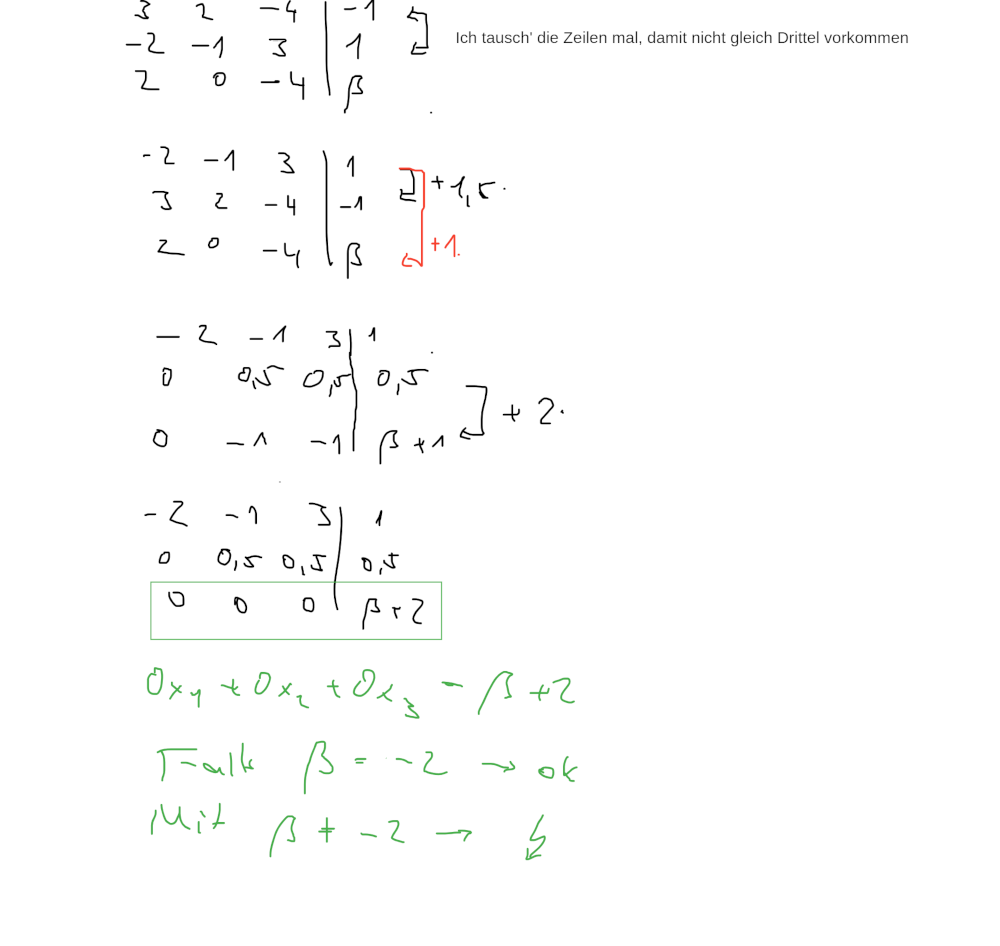 3 2 -4 | -1
Ich tausch' die Zeilen mal, damit nicht gleich Drittel vorkommen
-2 -1 3 | 1
2 0 -4 | β
-2 -1 3 | 1
+1,5·
3 2 -4 | -1
2 0 -4 | β
+1·
-2 -1 3 | 1
0 0,5 0,5 | 0,5
+2·
0 -1 -1 | β+1
-2 -1 3 | 1
0 0,5 0,5 | 0,5
0 0 0 | β+2
0x₁ + 0x₂ + 0x₃ = β+2
Falls β = -2 → ok
Mit β ≠ -2 → ↯